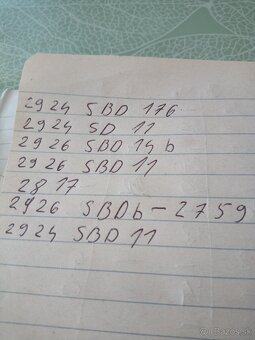 2924 SBD 176
2924 SD 11
2926 SBD 14 b
2926 SBD 11
2817
2926 SBDb - 2759
2924 SBD 11